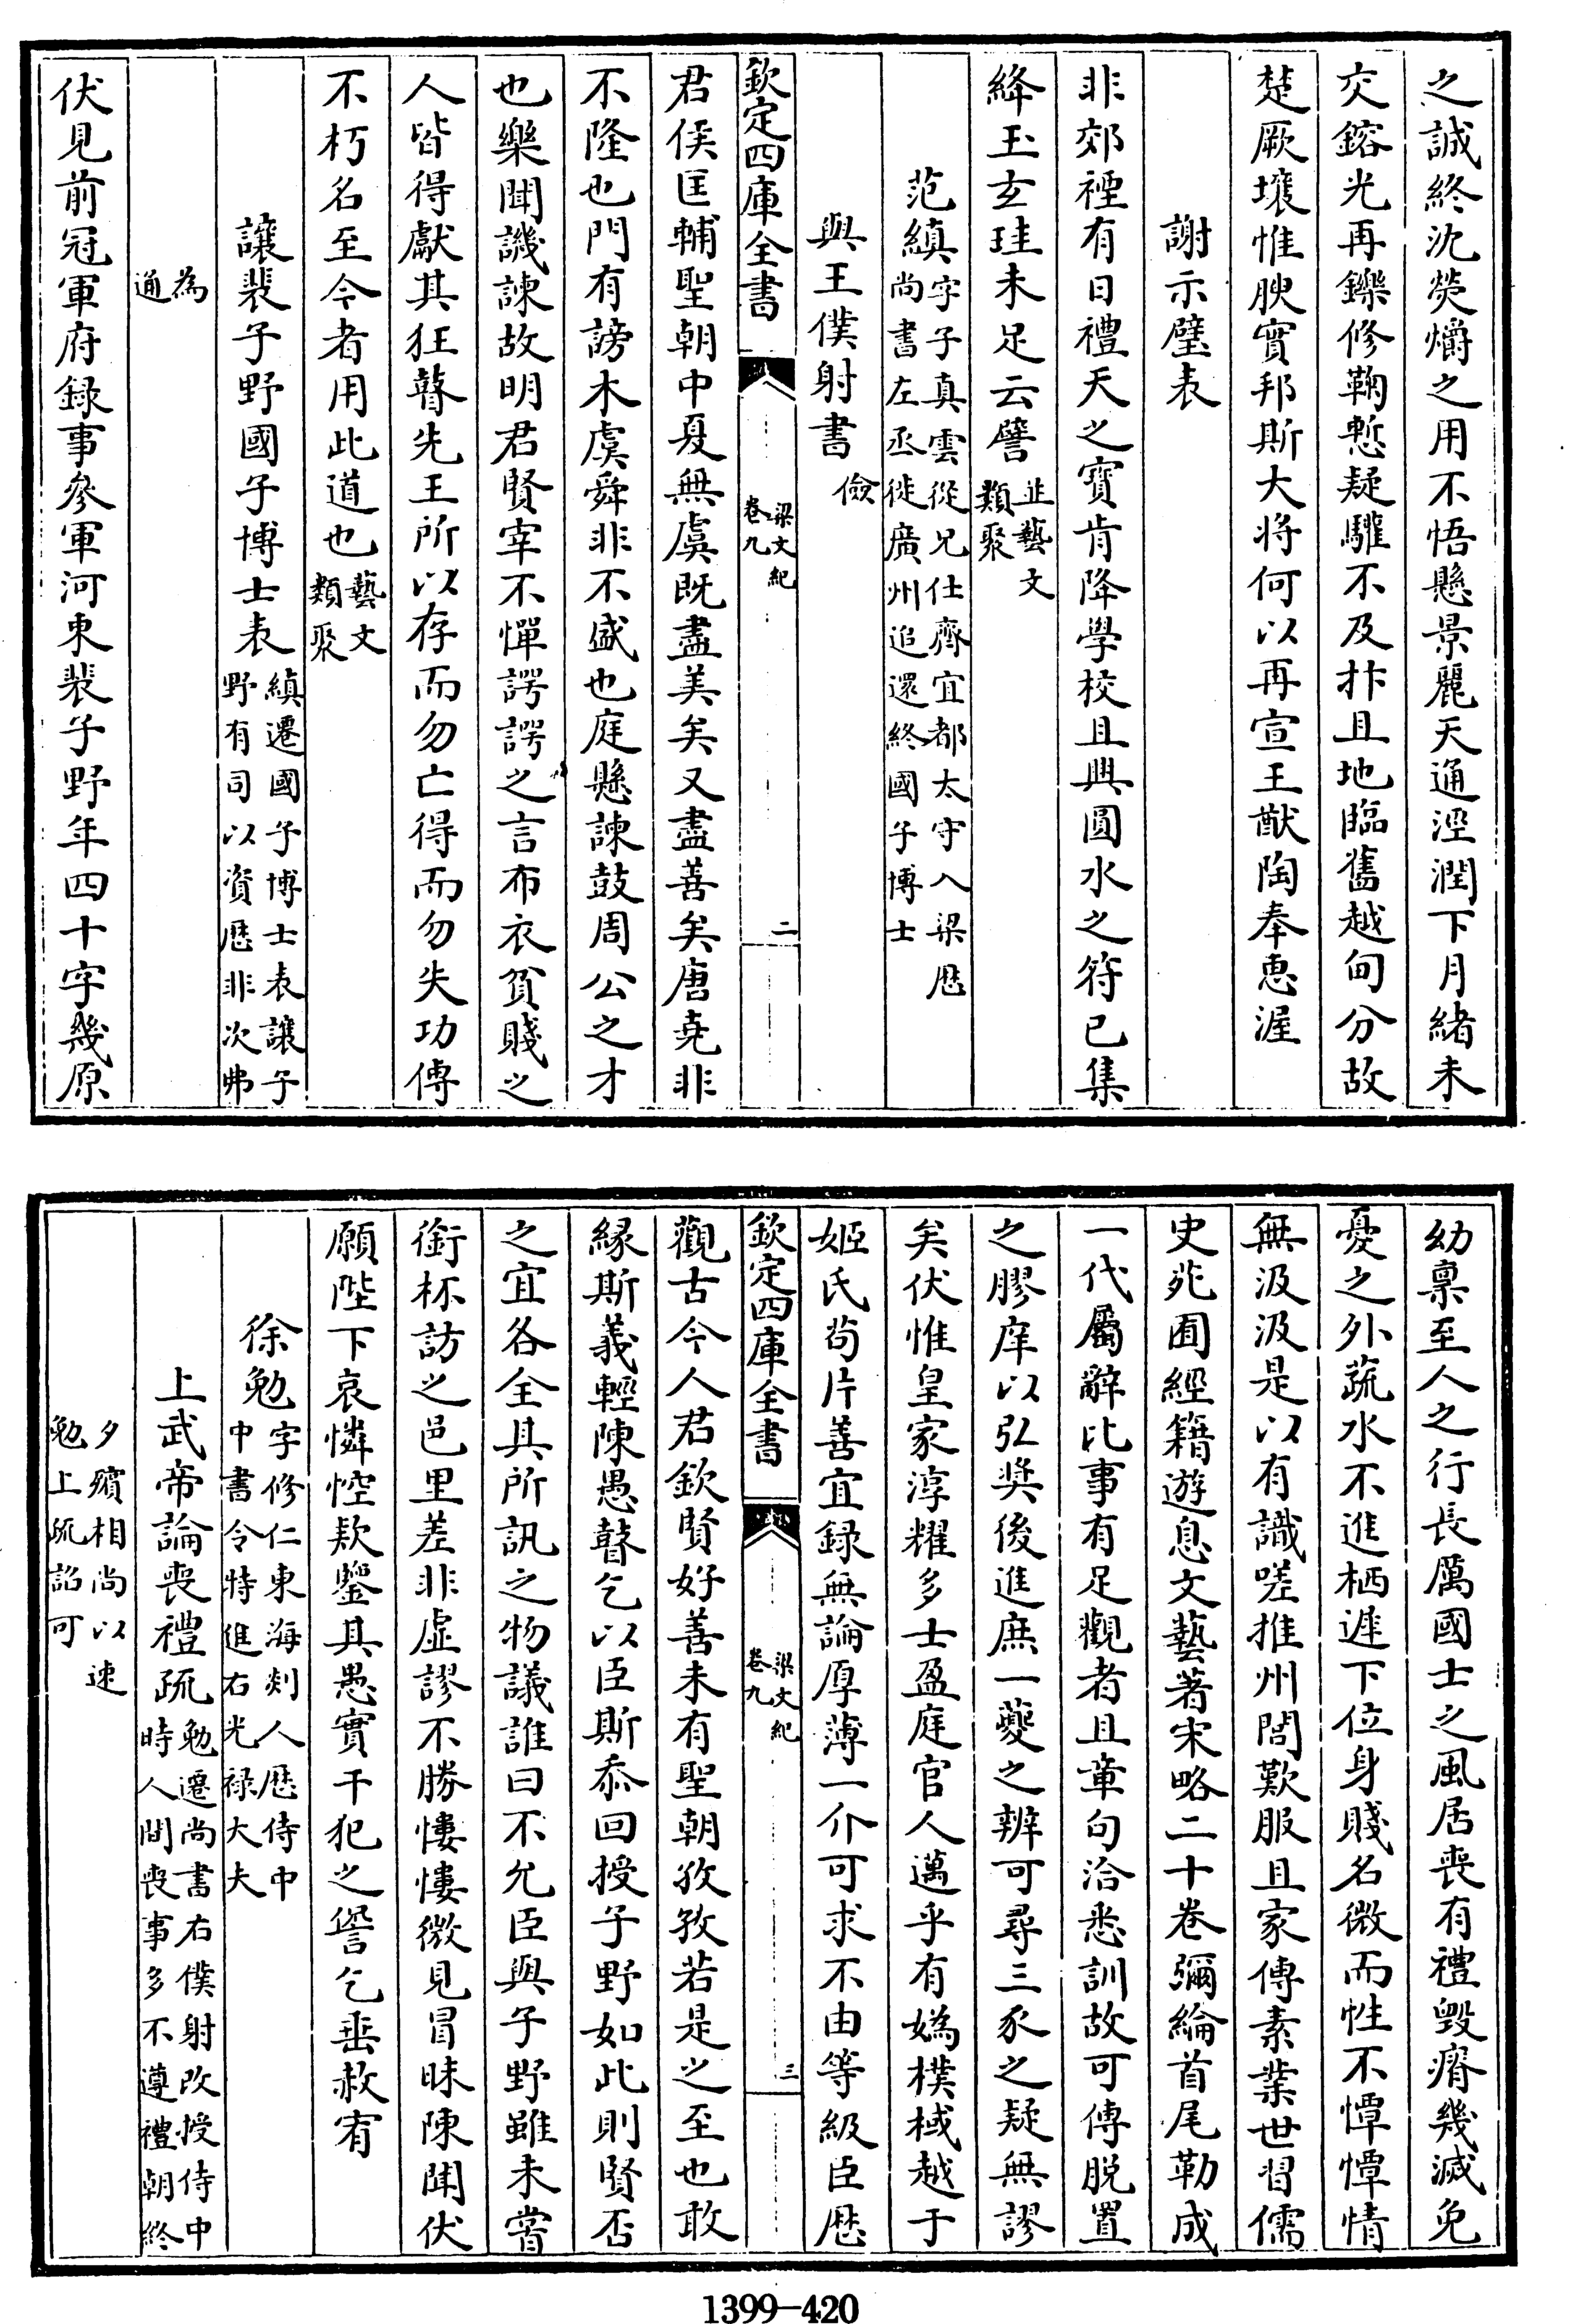 之誠終沈熒爝之用不悟懸景麗天通溼潤下月緒未
交鎔光再鑠修鞠慙疑驩不及抃且地臨舊越甸分故
楚厥壤惟腴實邦斯大将何以再宣王猷陶奉惠渥
謝示璧表
非郊禋有日禮天之寳肯降學校且興圓水之符已集
絳玉玄珪未足云譬
並藝文
類聚
范縝
字子真雲從兄仕齊宜都太守入梁歴
尚書左丞徙廣州追還終國子博士
與王僕射書
儉
欽定四庫全書
梁文紀
卷九
二
君侯匡輔聖朝中夏無虞既盡美矣又盡善矣唐堯非
不隆也門有謗木虞舜非不盛也庭懸諫鼓周公之才
也樂聞譏諫故明君賢宰不憚諤諤之言布衣貧賤之
人皆得獻其狂瞽先王所以存而勿亡得而勿失功傳
不朽名至今者用此道也
藝文
類聚
讓裴子野國子博士表
縝遷國子博士表讓子
野有司以資歴非次弗
為
通
伏見前冠軍府録事參軍河東裴子野年四十字幾原
幼禀至人之行長厲國士之風居喪有禮毁瘠幾滅免
憂之外蔬水不進栖遲下位身賤名微而性不憛憛情
無汲汲是以有識嗟推州閭歎服且家傳素業世習儒
史苑囿經籍遊息文藝著宋略二十卷彌綸首尾勒成
一代屬辭比事有足觀者且章句洽悉訓故可傳脱置
之膠庠以弘奬後進庶一夔之辨可尋三豕之疑無謬
矣伏惟皇家淳耀多士盈庭官人邁乎有媯棫樸越于
姬氏苟片善宜録無論厚薄一介可求不由等級臣歴
欽定四庫全書
梁文紀
卷九
三
觀古今人君欽賢好善未有聖朝孜孜若是之至也敢
縁斯義輕陳愚瞽乞以臣斯忝回授子野如此則賢否
之宜各全其所訊之物議誰曰不允臣與子野雖未嘗
銜杯訪之邑里差非虚謬不勝慺慺微見冒昧陳聞伏
願陛下哀憐悾款鑒其愚實干犯之諐乞垂赦宥
徐勉
字修仁東海郯人歴侍中
中書令特進右光禄大夫
上武帝論喪禮疏
勉遷尚書右僕射改授侍中
時人間喪事多不遵禮朝終
夕殯相尚以速
勉上疏詔可
1399–420